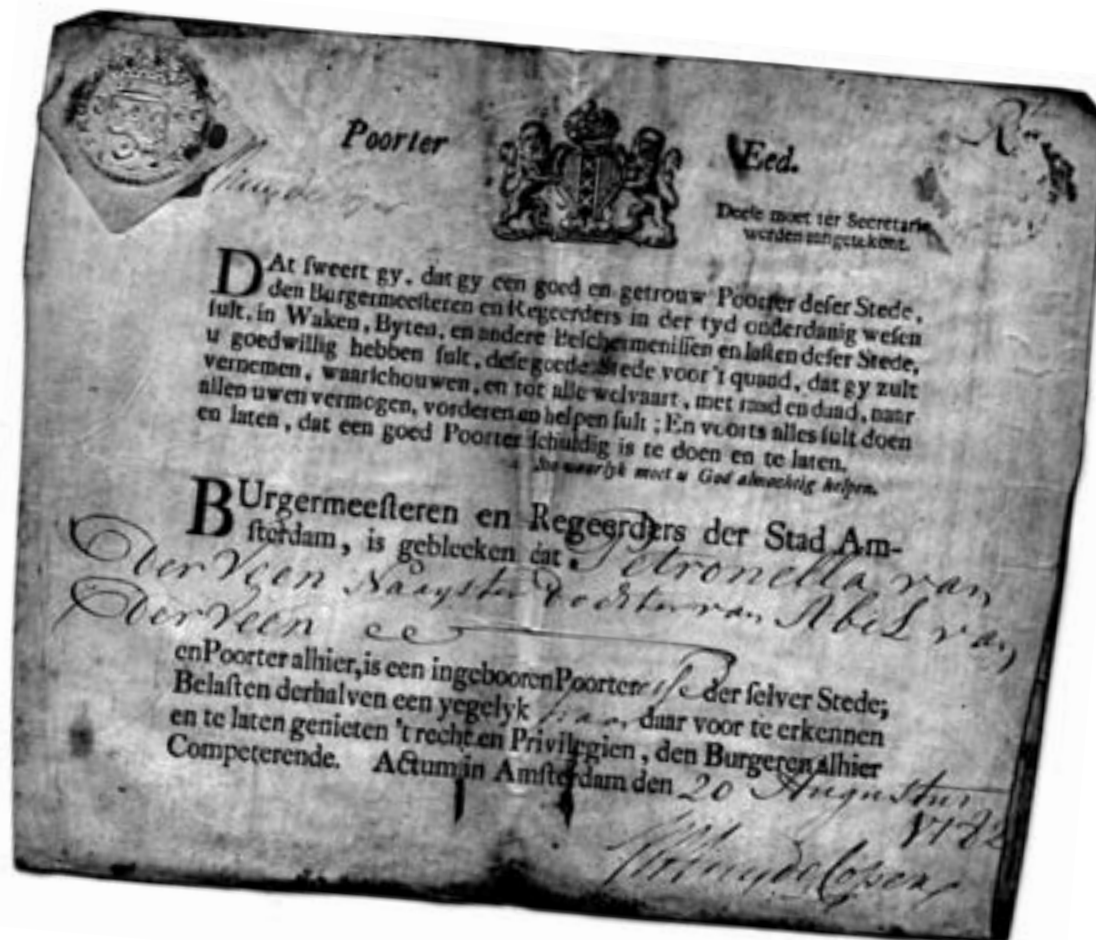 Poorter Eed.
Deese moet ter Secretarie
werden aangetekent.
DAt sweert gy, dat gy een goed en getrouw Poorter deser Stede,
den Burgermeesteren en Regeerders in der tyd onderdanig wesen
sult, in Waken, Byten, en andere Beschermenissen en lasten deser Stede,
u goedwillig hebben sult, dese goede Stede voor 't quaad, dat gy zult
vernemen, waarschouwen, en tot alle welvaart, met raad en daad, naar
allen uwen vermogen, vorderen en helpen sult; En voorts alles sult doen
en laten, dat een goed Poorter schuldig is te doen en te laten.
Soo waarlyk moet u God almachtig helpen.
BUrgermeesteren en Regeerders der Stad Am-
sterdam, is gebleeken dat Petronella van
der Veen Naayster dochter van Abel van
der Veen
en Poorter alhier, is een ingebooren Poorteresse der selver Stede;
Belasten derhalven een yegelyk haar daar voor te erkennen
en te laten genieten 't recht en Privilegien, den Burgeren alhier
Competerende. Actum in Amsterdam den 20 Augustus
1782